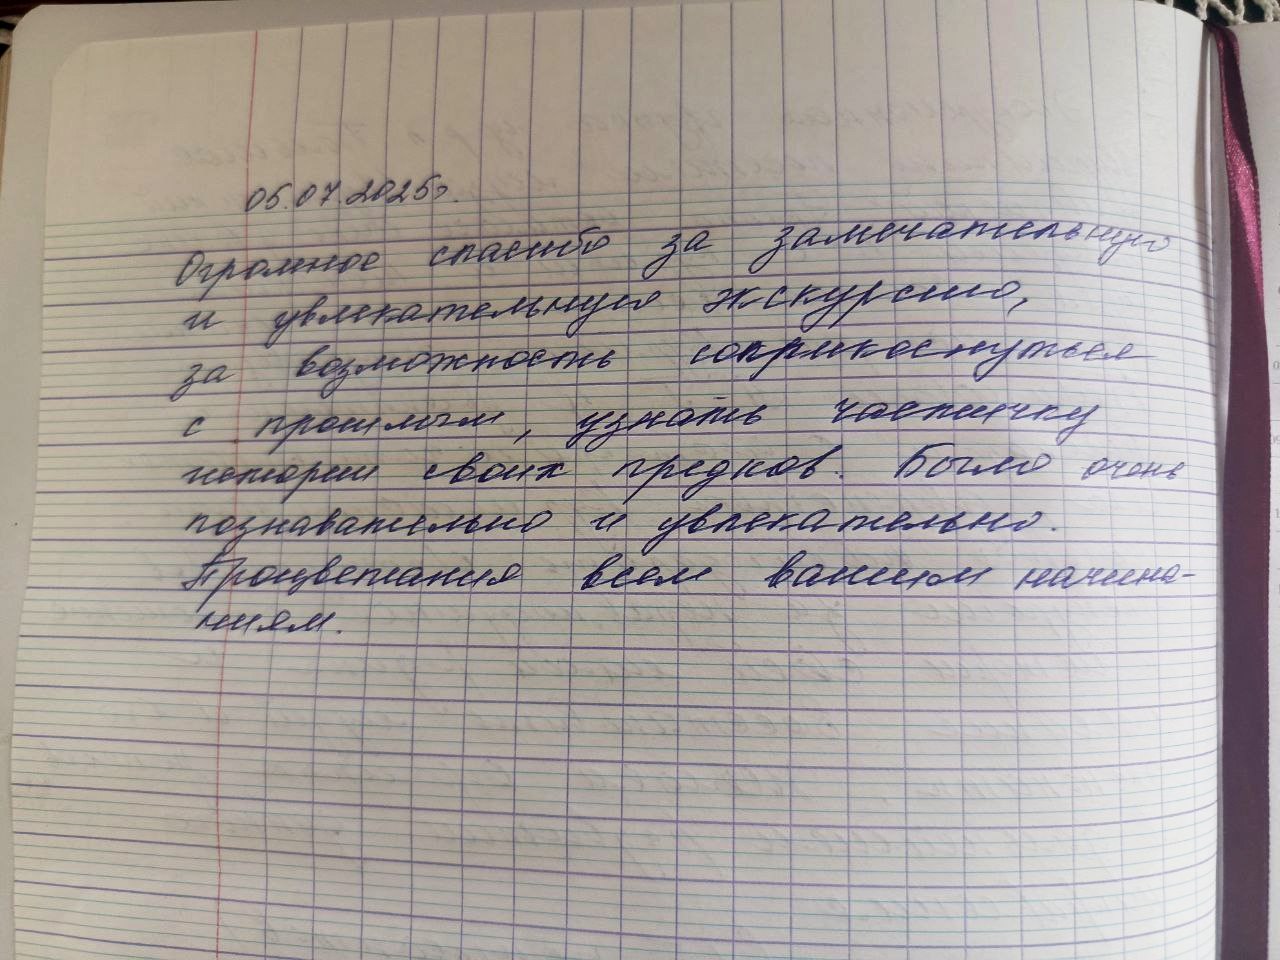 05.07.2025г.
Огромное спасибо за замечательную
и увлекательную экскурсию,
за возможность соприкоснуться
с прошлым, узнать частичку
истории своих предков. Было очень
познавательно и увлекательно.
Процветания всем вашим начина-
ниям.